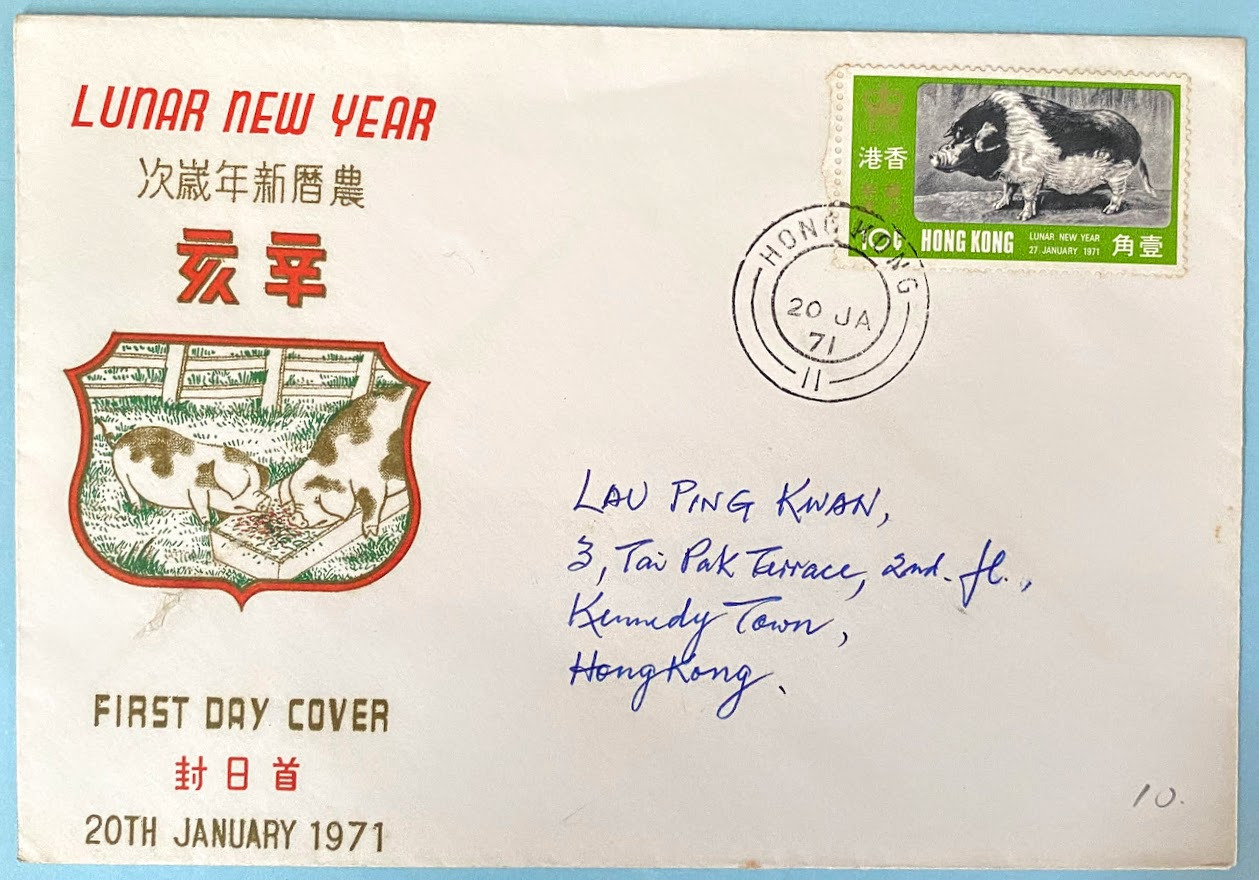 LUNAR NEW YEAR
農曆新年嵗次
辛亥
FIRST DAY COVER
首日封
20TH JANUARY 1971
香港
10¢ HONG KONG
LUNAR NEW YEAR
27 JANUARY 1971
壹角
HONG KONG
20 JA
71
11
LAU PING KWAN,
3, Tai Pak Terrace, 2nd. fl.,
Kennedy Town,
Hong Kong.
10.